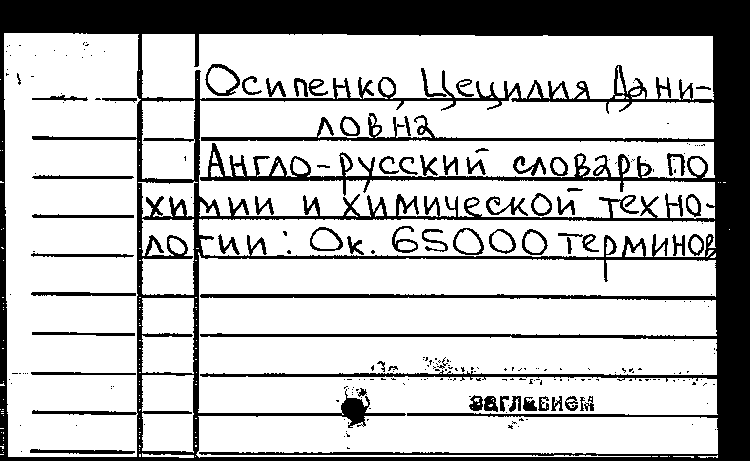 Осипенко, Цецилия Дани-
ловна
Англо-русский словарь по
химии и химической техно-
логии: Ок. 65000 терминов
заглавием